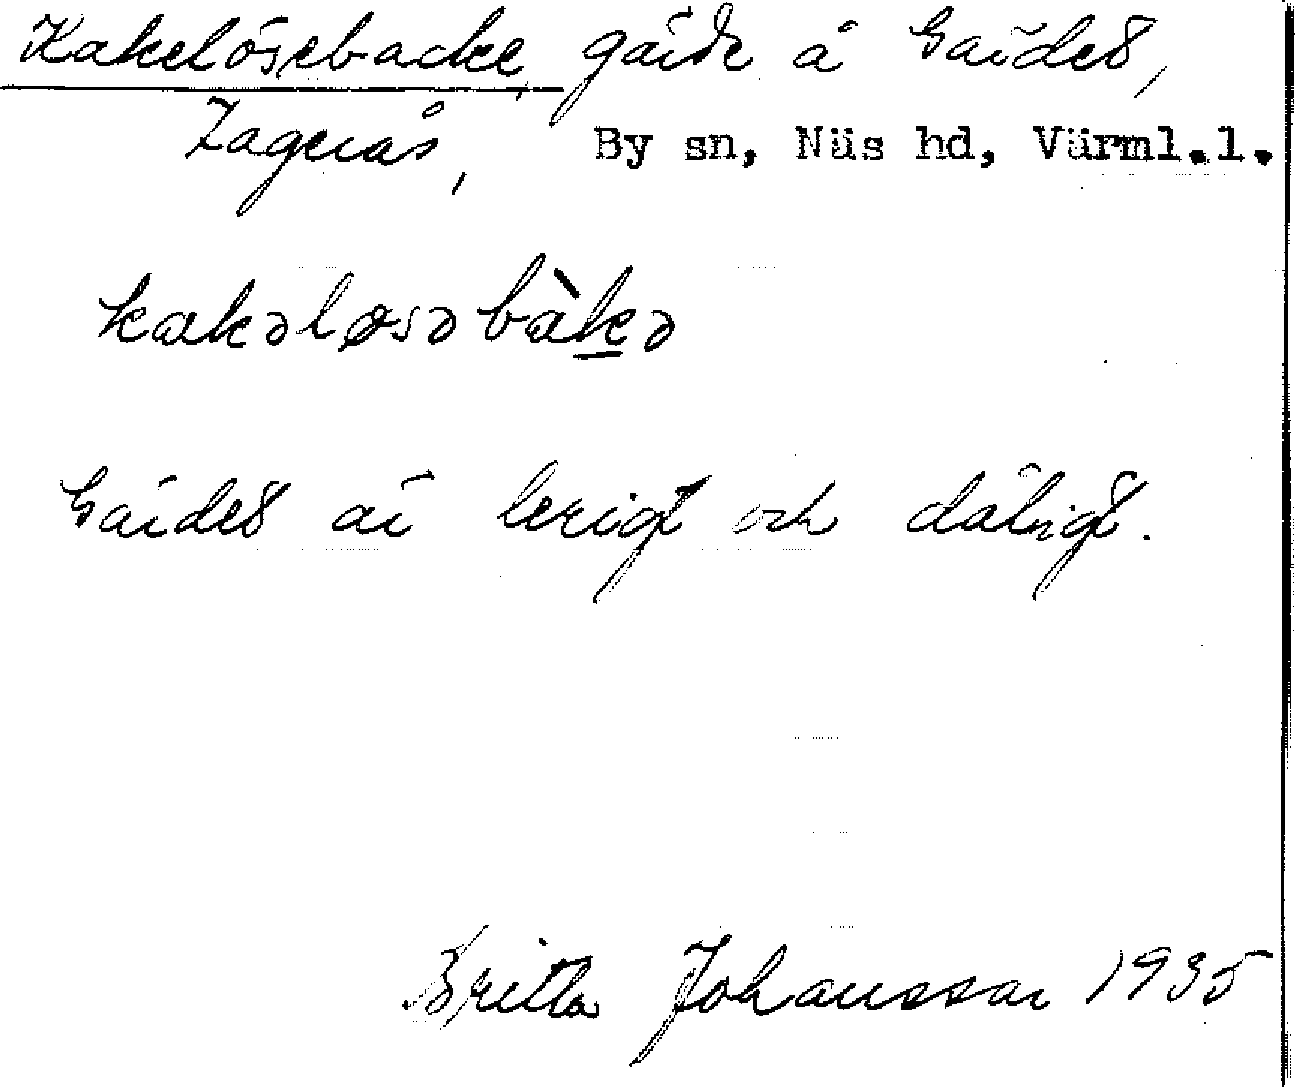 Kakelösebacke, gärde å Gärdet,
Lagerås, By sn, Näs hd, Värml.l.
kakəløsəbàkə
Gärdet är lerigt och dåligt.
Britta Johansson 1935